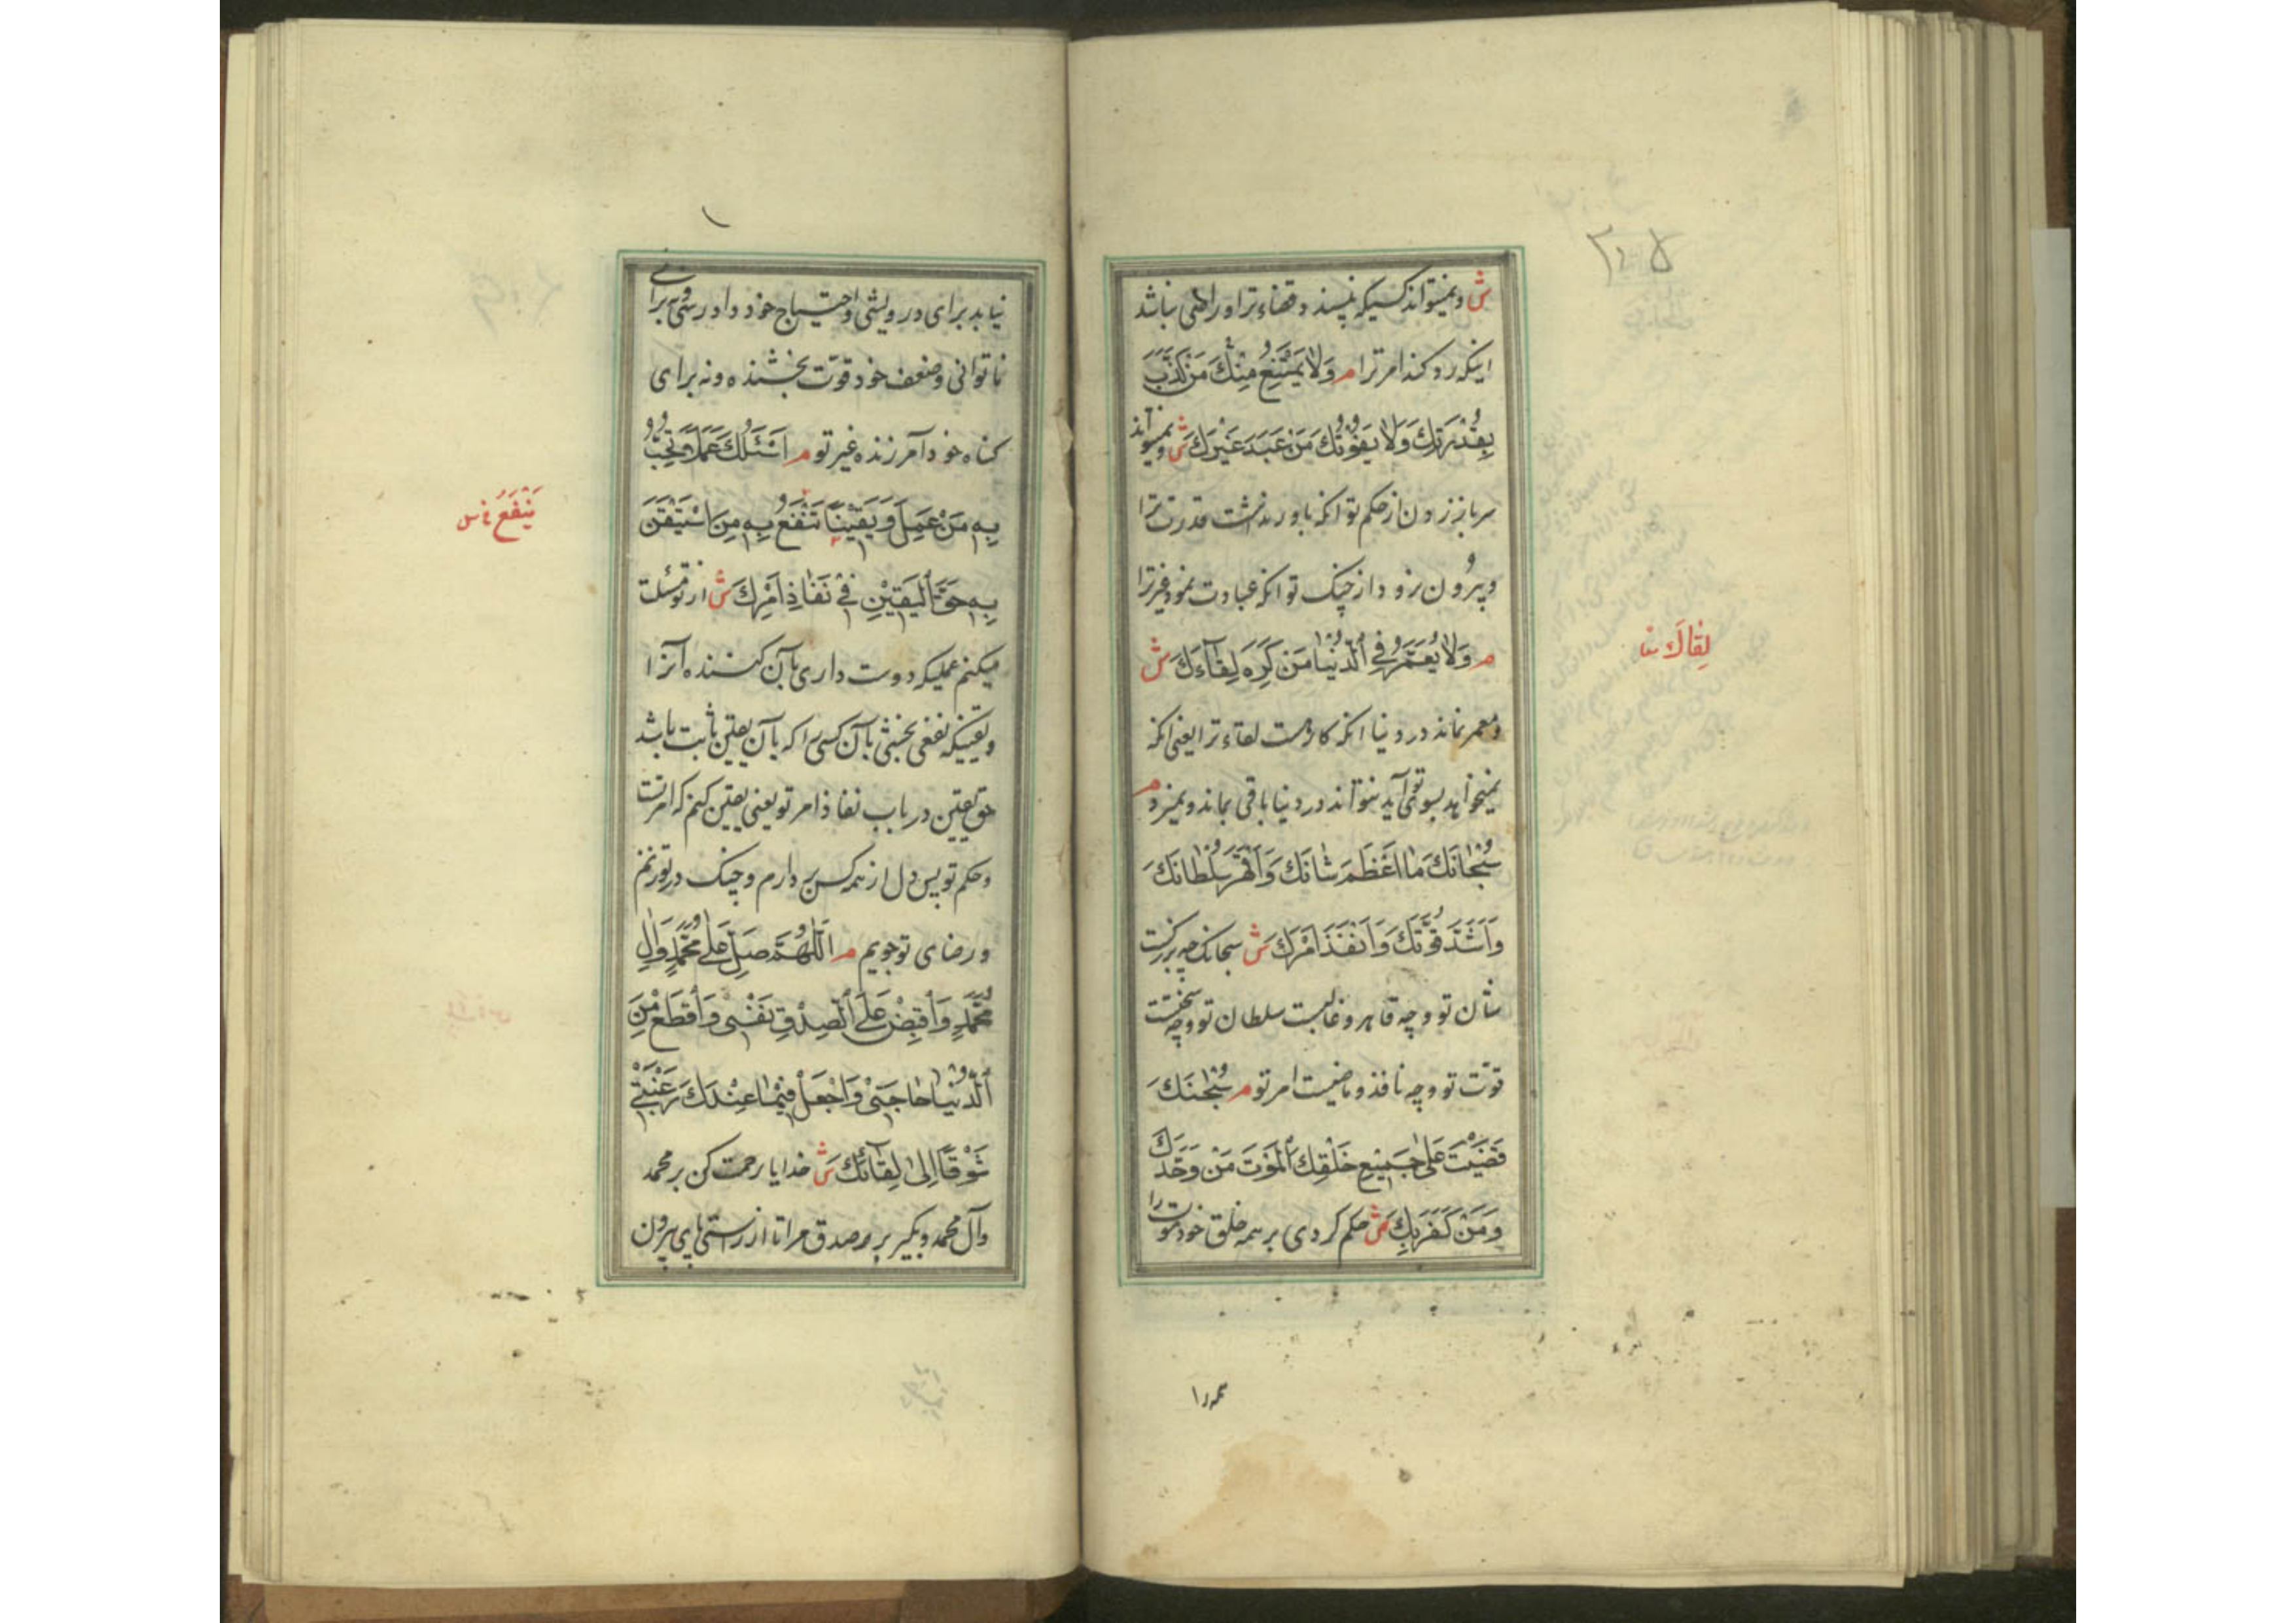 ش ونمیتواند کسیکه نپسندد قضاء ترا وراضی نباشد
اینکه رد کند امر ترا م وَلا یَمْتَنِعُ مِنْكَ مَنْ كَذَّبَ
بِقُدْرَتِكَ وَلا یَفُوْتُكَ مَنْ عَبَدَ غَیْرَكَ ش ونمیتواند
سرباز زدن از حکم تو آنکه باور نداشت قدرت ترا
وبیرون نرود از چنگ تو آنکه عبادت نمود غیر ترا
م وَلا یُعَمَّرُ فِی الدُّنْیا مَنْ كَرِهَ لِقاءَكَ ش
ومعمر نماند در دنیا آنکه کارهست لقاء ترا یعنی آنکه
نمیخواهد بسوی تو آید نتواند در دنیا باقی بماند ونمیرد م
سُبْحانَكَ ما اَعْظَمَ شَانَكَ وَاَقْهَرَ سُلْطانَكَ
وَاَشَدَّ قُوَّتَكَ وَاَنْفَذَ اَمْرَكَ ش سبحانک چه بزرکست
شأن تو وچه قاهر وغالبست سلطان تو وچه سختست
قوّت تو وچه نافذ وماضیست امر تو م سُبْحٰنَكَ
قَضَیْتَ عَلیٰ جَمِیْعِ خَلْقِكَ الْمَوْتَ مَنْ وَحَّدَكَ
وَمَنْ كَفَرَ بِكَ ش حکم کردی بر همه خلق خود موت را
لِقاكَ
همه را
نیاید برای درویشی واحتیاج خود دادرسی ونه برای
ناتوانی وضعف خود قوّت بخشنده ونه برای
کناه خود آمرزنده غیر تو م اَسْئَلُكَ عَمَلاً تُحِبُّ
بِهِ مَنْ عَمِلَ وَیَقِیْناً تَنْفَعُ بِهِ مَنِ اسْتَیْقَنَ
بِهِ حَقَّ الْیَقِیْنِ فِیْ نَفاذِ اَمْرِكَ ش از تو مسئلت
میکنم عملیکه دوست داری بآن کننده آنرا
ویقینیکه نفعی بخشی بآن کسی را که بآن یقین ثابت باشد
حق یقین در باب نفاذ امر تو یعنی یقین کنم که امر تست
وحکم تو پس دل از همه کس بردارم وچنگ در تو زنم
ورضای تو جویم م اَللّٰهُمَّ صَلِّ عَلیٰ مُحَمَّدٍ وَاٰلِ
مُحَمَّدٍ وَاَقْبِضْ عَلَی الصِّدْقِ نَفْسِیْ وَاَقْطَعْ مِنَ
الدُّنْیا حاجَتِیْ وَاجْعَلْ فِیْما عِنْدَكَ رَغْبَتِیْ
شَوْقاً اِلیٰ لِقائِكَ ش خدایا رحمت کن بر محمد
وآل محمد وبکیر بر صدق مرا تا از راستی پای بیرون
یَنْفَعُ